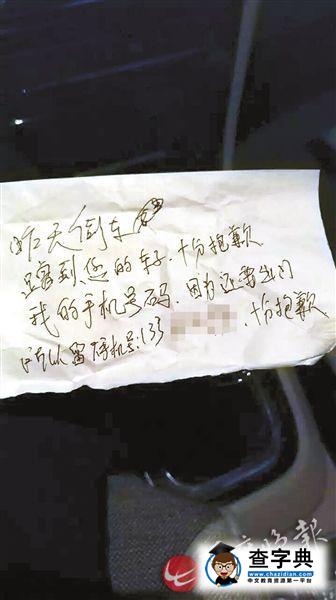 昨天倒车
碰到您的车子.十分抱歉
我的手机号码.因为还要出门
所以留手机号:133 十分抱歉
晚報
查字典
www.chazidian.com
中文教育资源第一平台